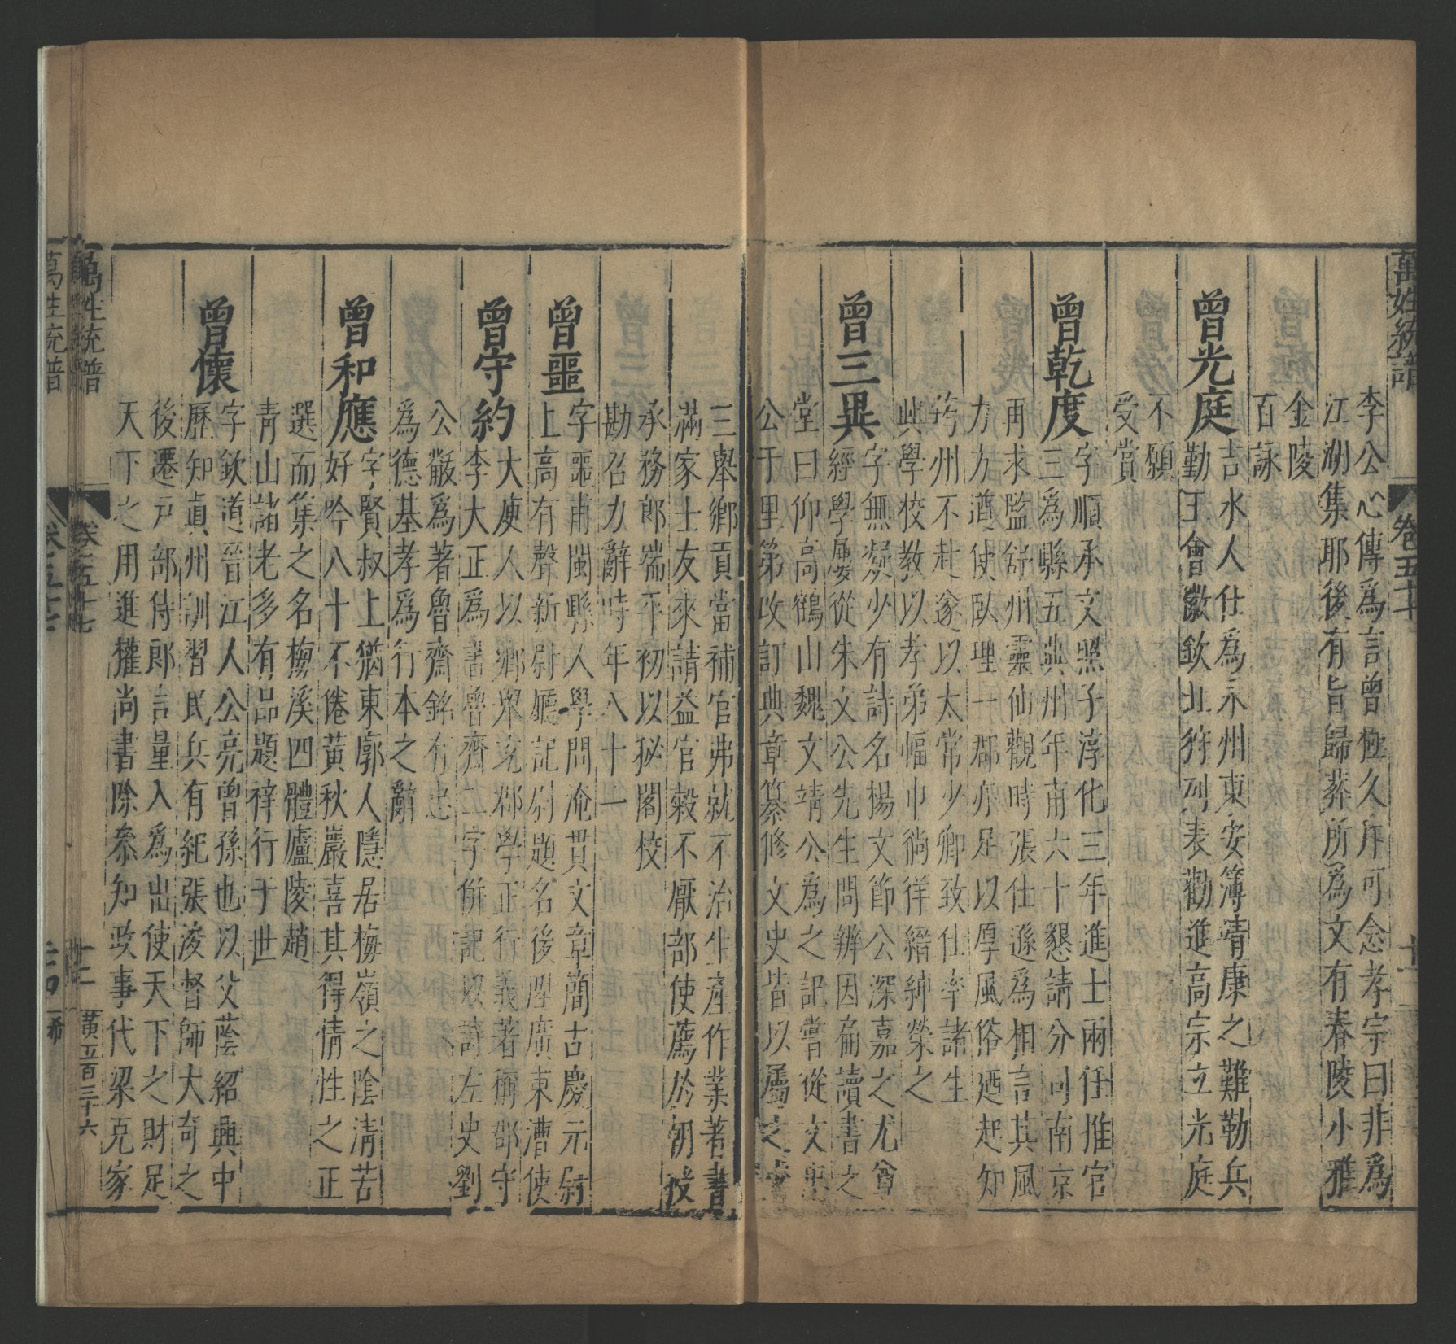 萬姓統譜
卷五十七
十二
李公心傳爲言曾極久斥可念孝宗曰非爲
江湖集耶後有旨歸葬所爲文有舂陵小雅
金陵
百詠
曾光庭
吉水人仕爲永州東安簿靖康之難勒兵
勤王會徽欽北狩列表勸進高宗立光庭
不願
受賞
曾乾度
字順承文照子淳化三年進士兩任推官
三爲縣五典州年甫六十懇請分司南京
再求監舒州靈仙觀時張仕遜爲相言其風
力方遒使臥理一郡亦足以厚風俗迺起知
筠州不赴遂以太常少卿致仕率諸生
此學校教以孝弟幅巾徜徉縉紳榮之
曾三異
字無凝少有詩名楊文節公深嘉之尤會
經學屢從朱文公先生問辨因扁讀書之
堂曰仰高鶴山魏文靖公爲之記嘗從文忠
公于里第改訂典章纂修文史皆以屬之
三舉鄉貢當補官弗就不治生產作業著書
滿家士友來請益官榖不厭部使薦於朝授
承務郎端平初以祕閣校
勘召力辭時年八十一
曾噩
字噩甫閩縣人學問淹貫文章簡古慶元尉
上高有聲新尉廳記尉題名後歷廣東漕使
曾守約
大庾人以鄉舉充郡學正行義著稱郡守
李大正爲書魯齊二字併記以詩左史劉
公黻爲著魯齊銘有忠
爲德基孝爲行本之辭
曾和應
字賢叔上猶東廓人隱居梅嶺之陰清苦
好吟八十不倦黃秋巖喜其得情性之正
選而集之名梅溪四體廬陵趙
青山諸老多有品題梓行于世
曾懷
字欽道晉江人公亮曾孫也以父蔭紹興中
歷知真州訓習民兵有紀張浚督師大奇之
後遷戶部侍郎言量入爲出使天下之財足
天下之用進權尚書除叅知政事代梁克家
萬姓統譜
卷之五十七
十二
黃五百三十六
萬姓統譜